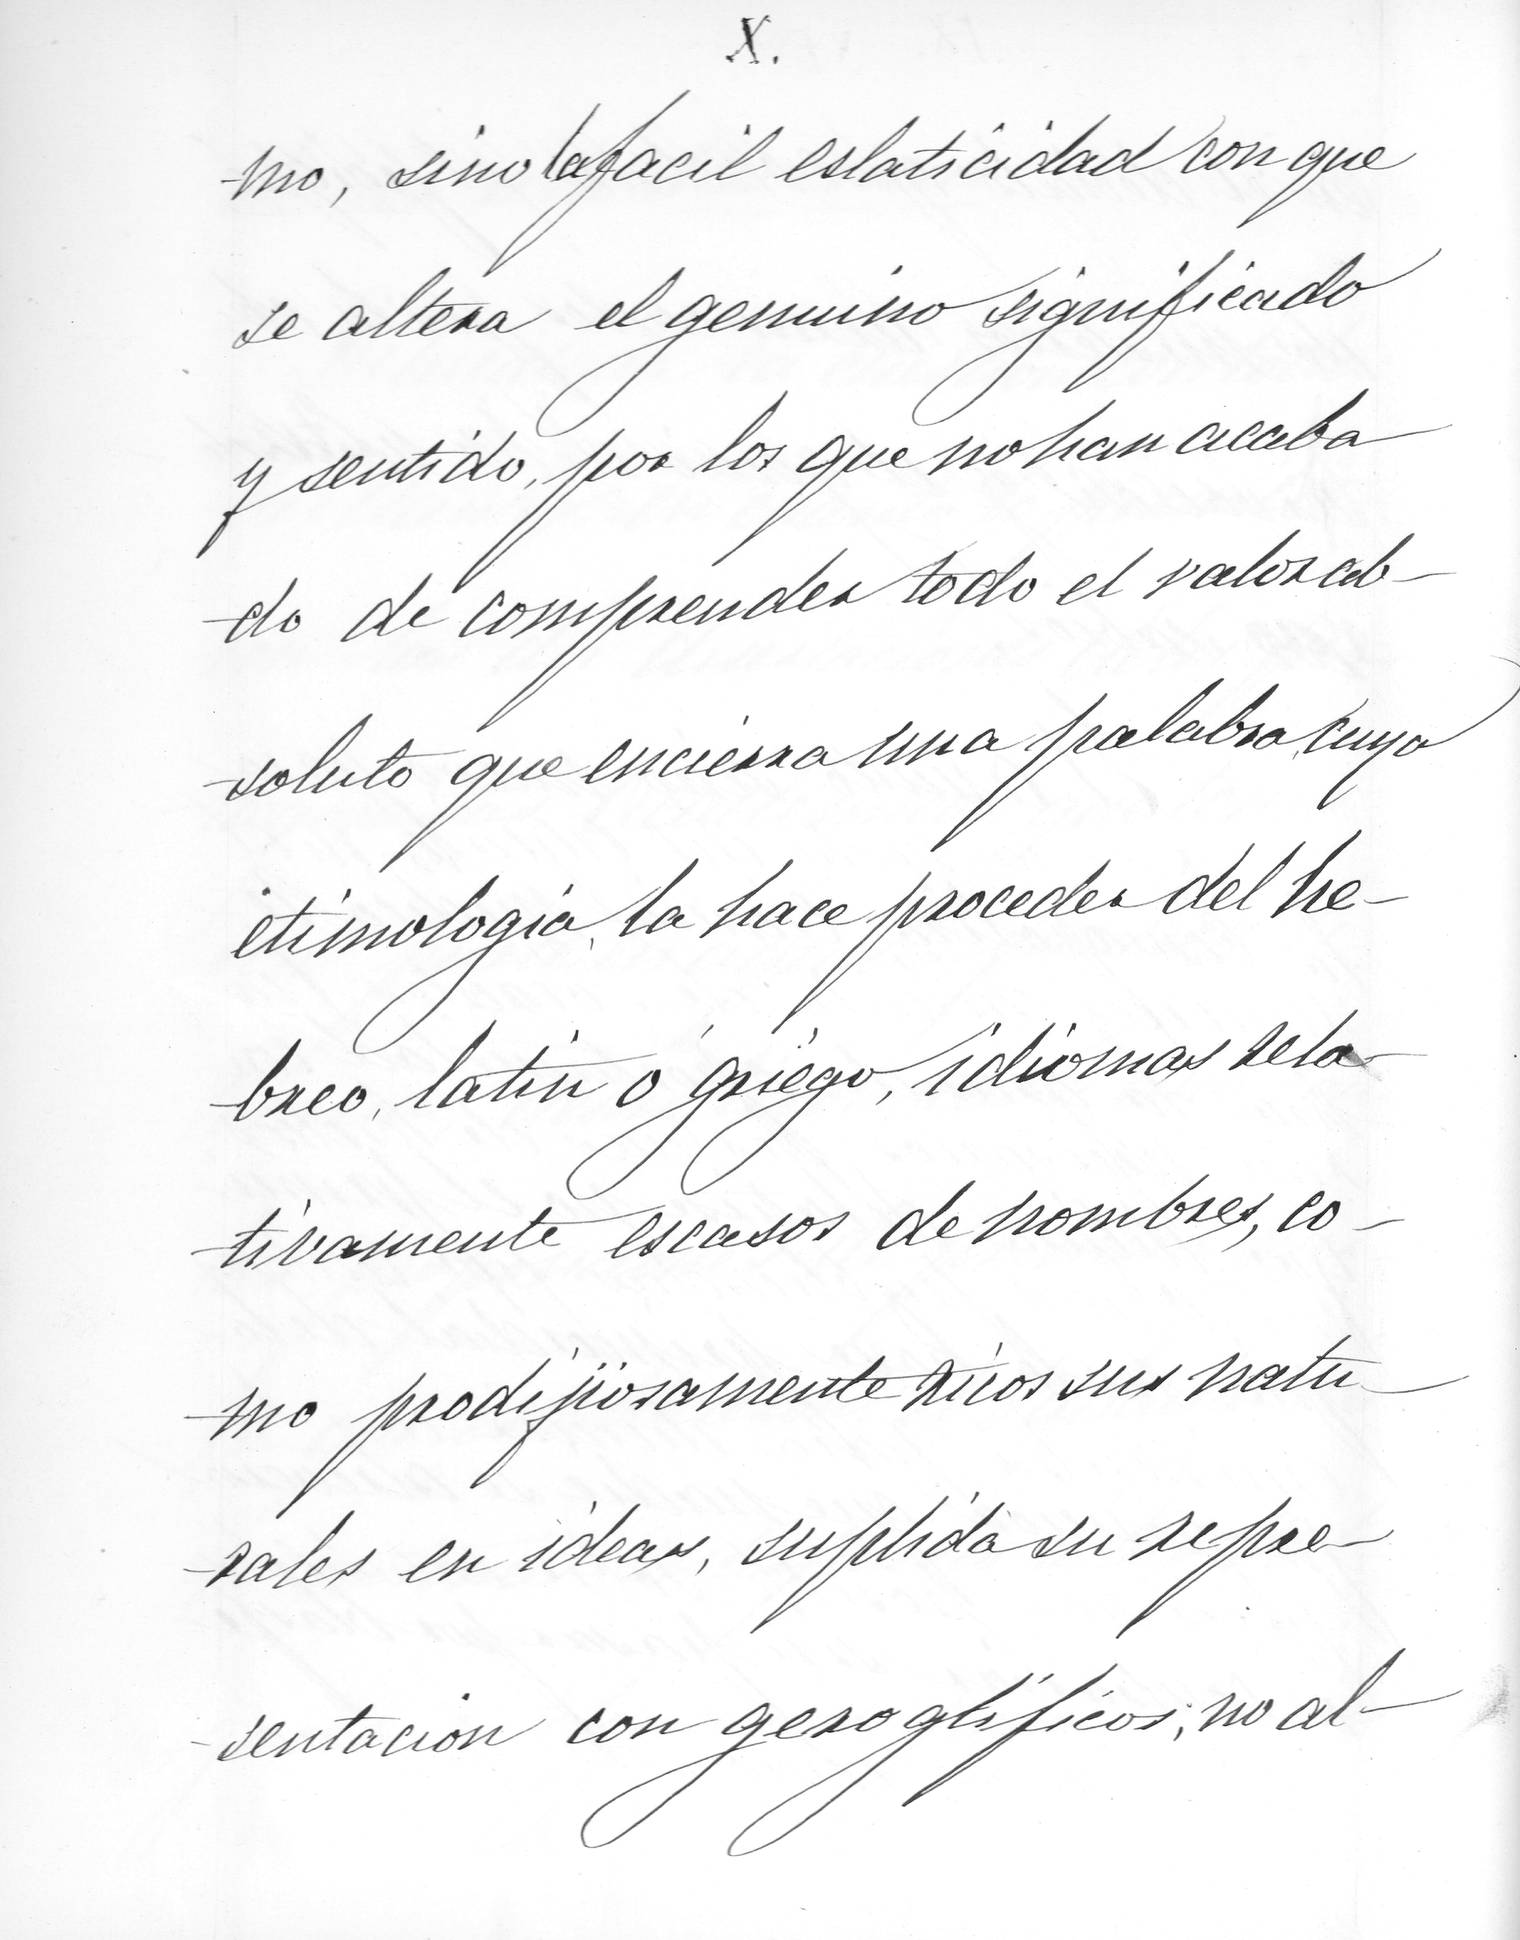 X.
mo, sino la facil eslaticidad con que
se altera el genuino significado
y sentido, por los que no han acaba
do de comprender todo el valor ab-
soluto que encierra una palabra, cuya
etimologia, la hace proceder del he-
breo, latin ó griego, idiomas rela-
tivamente escasos de nombres, co-
mo prodijiosamente ricos sus natu-
rales en ideas, suplida su repre-
sentacion con geroglificos; no al-